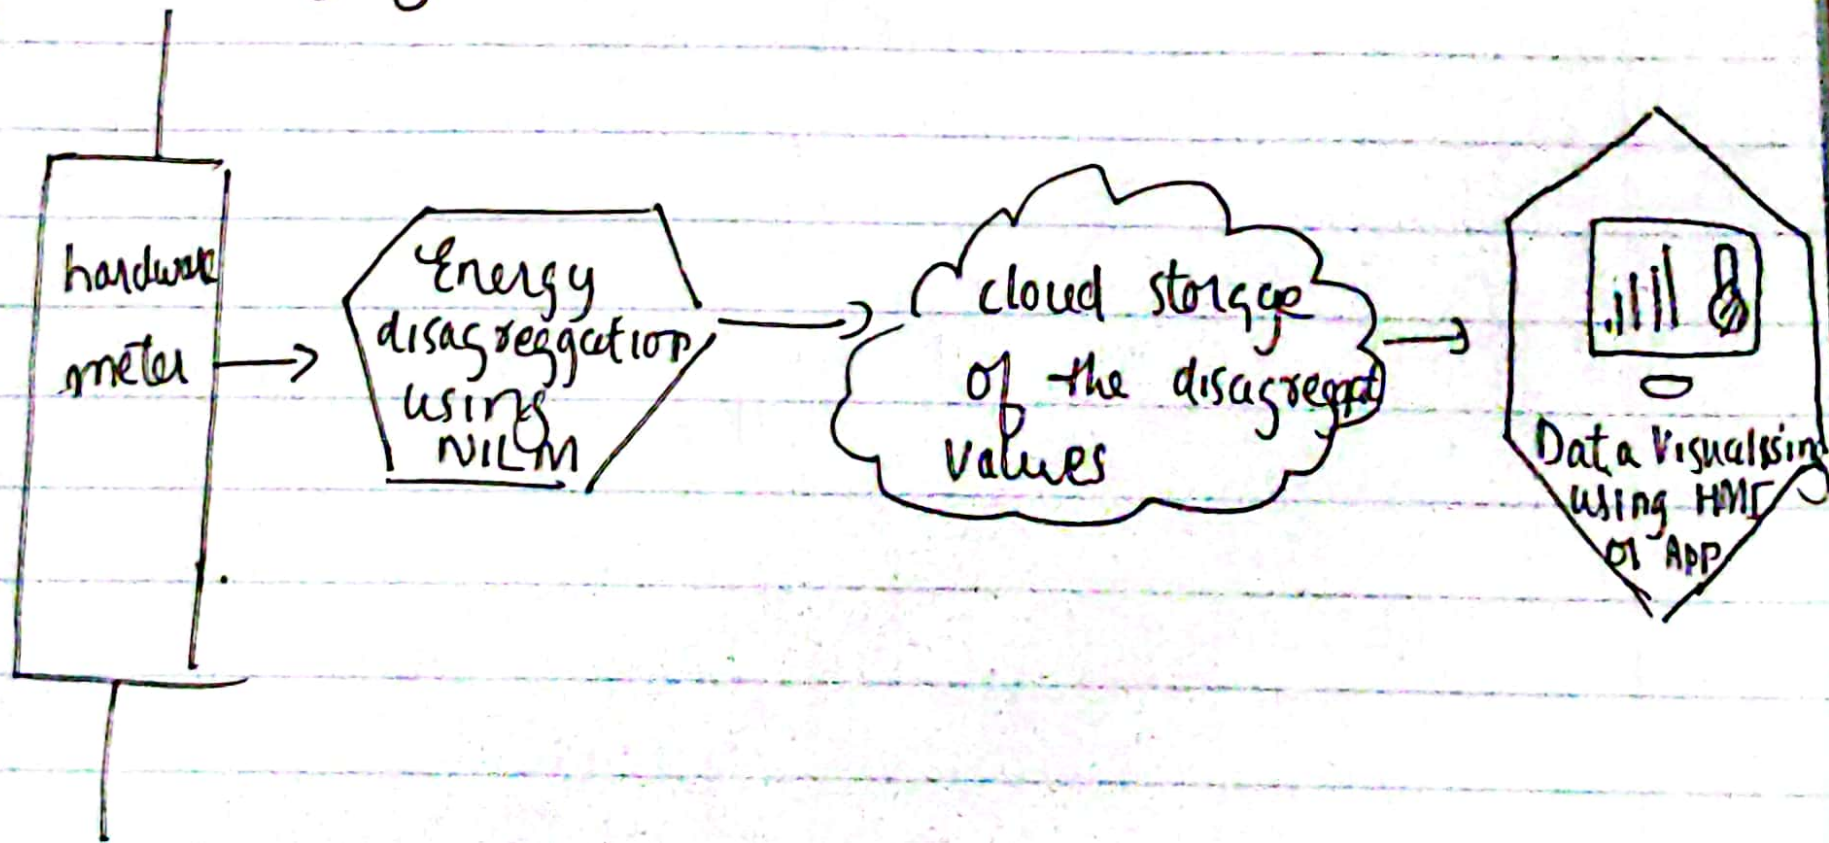 hardware
meter
Energy
disagreggation
using
NILM
cloud storage
of the
values
Data Visualssing
using HMI
or App